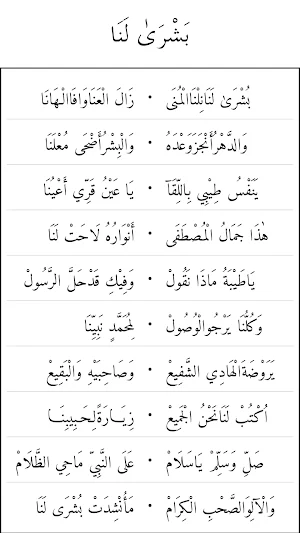 بَشْرَىٰ لَنَا
بُشْرَىٰ لَنَانِلْنَاالْمُنَى • زَالَ الْعَنَاوَافَاالْهَانَا
وَالدَّهْرُأَنْجَزَوَعْدَهُ • وَالْبِشْرُأَضْحَى مُعْلَنَا
يَنَفْسُ طِيْبِي بِاللِّقَآ • يَا عَيْنُ قَرِّي أَعْيُنَا
هٰذَا جَمَالُ الْمُصْطَفَى • أَنْوَارُهُ لَاحَتْ لَنَا
يَاطَيْبَةُ مَاذَا نَقُولْ • وَفِيْكِ قَدْحَلَّ الرَّسُولْ
وَكُلُّنَا يَرْجُوالْوُصُولْ • لِمُحَمَّدٍ نَبِيِّنَا
يَرَوْضَةَالْهَادِي الشَّفِيْعْ • وَصَاحِبَيْهِ وَالْبَقِيْعْ
اُكْتُبْ لَنَانَحْنُ الْجَمِيْعْ • زِيَارَةًلِحَبِيبِنَا
صَلِّ وَسَلِّمْ يَاسَلَامْ • عَلَى النَّبِيِّ مَاحِي الظَّلَامْ
وَالْآلِوَالصَّحْبِ الْكِرَامْ • مَاأُنْشِدَتْ بُشْرَى لَنَا